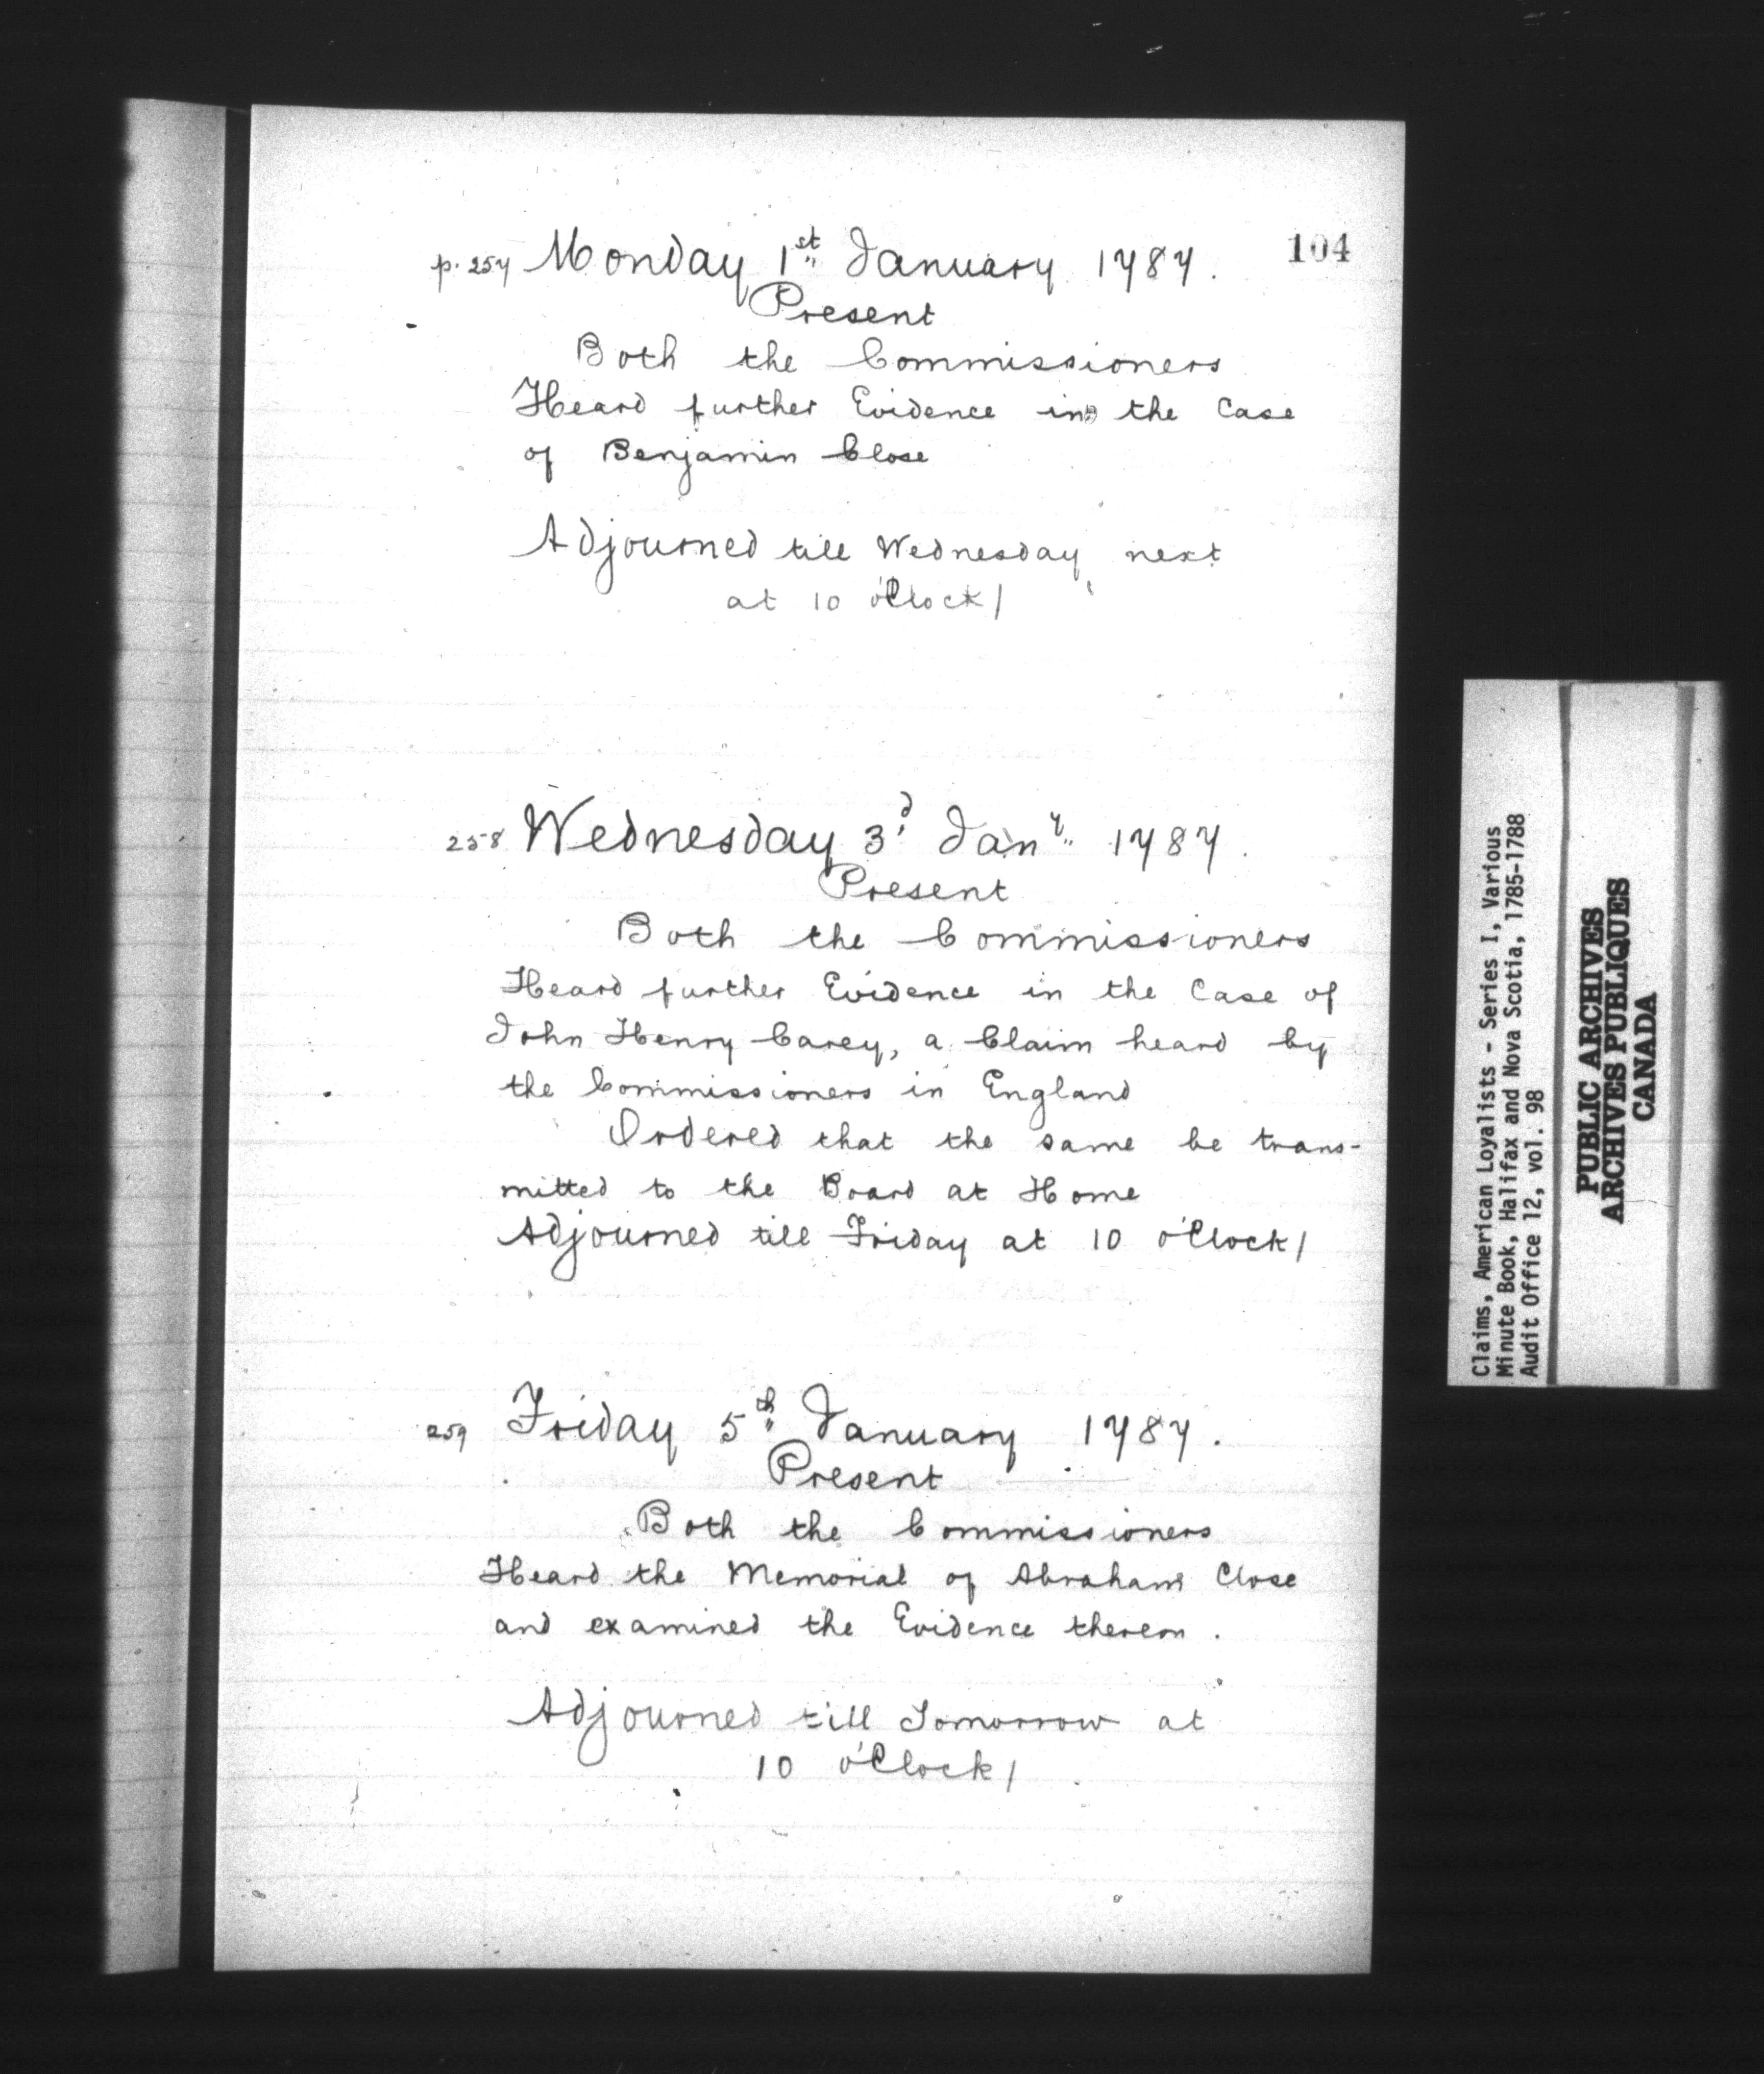 104
p. 257 Monday 1st January 1787.
Present
Both the Commissioners
Heard further Evidence in the Case
of Benjamin Close
Adjourned till Wednesday next
at 10 o'Clock/
258 Wednesday 3d Jany 1787.
Present
Both the Commissioners
Heard further Evidence in the Case of
John Henry Carey, a Claim heard by
the Commissioners in England
Ordered that the same be trans-
mitted to the Board at Home
Adjourned till Friday at 10 o'Clock/
259 Friday 5th January 1787.
Present
Both the Commissioners
Heard the Memorial of Abraham Close
and examined the Evidence thereon.
Adjourned till Tomorrow at
10 o'Clock/
Claims, American Loyalists - Series I, Various
Minute Book, Halifax and Nova Scotia, 1785-1788
Audit Office 12, vol. 98
PUBLIC ARCHIVES
ARCHIVES PUBLIQUES
CANADA